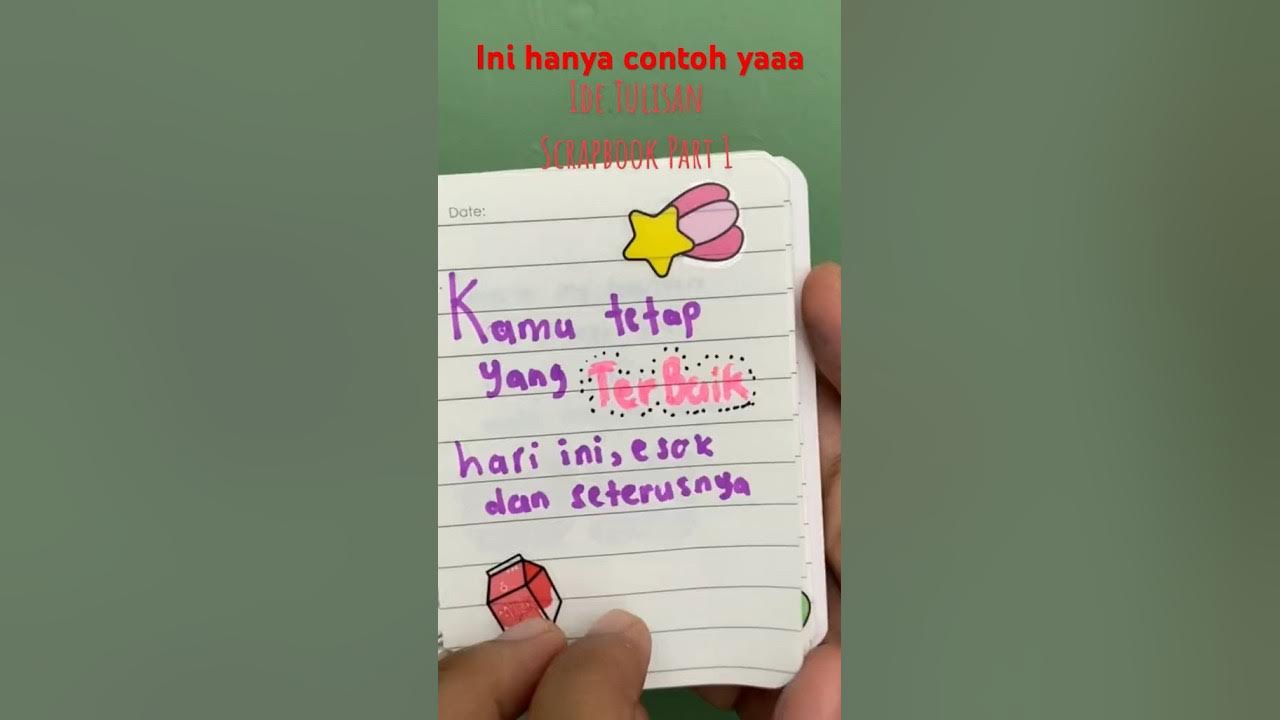 Ini hanya contoh yaaa
Ide Tulisan
Scrapbook Part 1
Date:
Kamu tetap
yang TerBaik
hari ini, esok
dan seterusnya